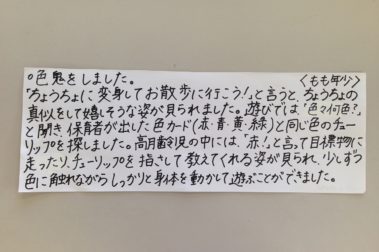 ○色鬼をしました。 〈もも年少〉
「ちょうちょに変身してお散歩に行こう!」と言うと、ちょうちょの
真似をして嬉しそうな姿が見られました。遊びでは「色々何色?」
と聞き、保育者が出した色カード(赤・青・黄・緑)と同じ色のチュー
リップを探しました。高月齢児の中には、「赤!」と言って目標物に
走ったり、チューリップを指さして教えてくれる姿が見られ、少しずつ
色に触れながらしっかりと身体を動かして遊ぶことができました。